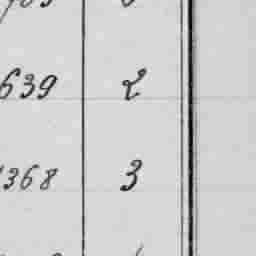 639 2
368 3